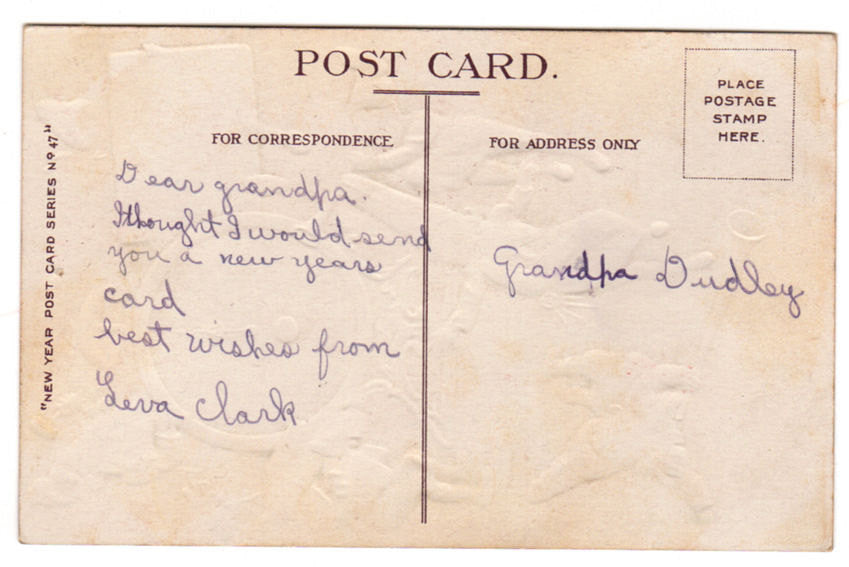 POST CARD.
PLACE
POSTAGE
STAMP
HERE.
FOR CORRESPONDENCE
FOR ADDRESS ONLY
"NEW YEAR POST CARD SERIES Nº 47"
Dear grandpa.
I thought I would send
you a new years
card
best wishes from
Leva Clark
Grandpa Dudley